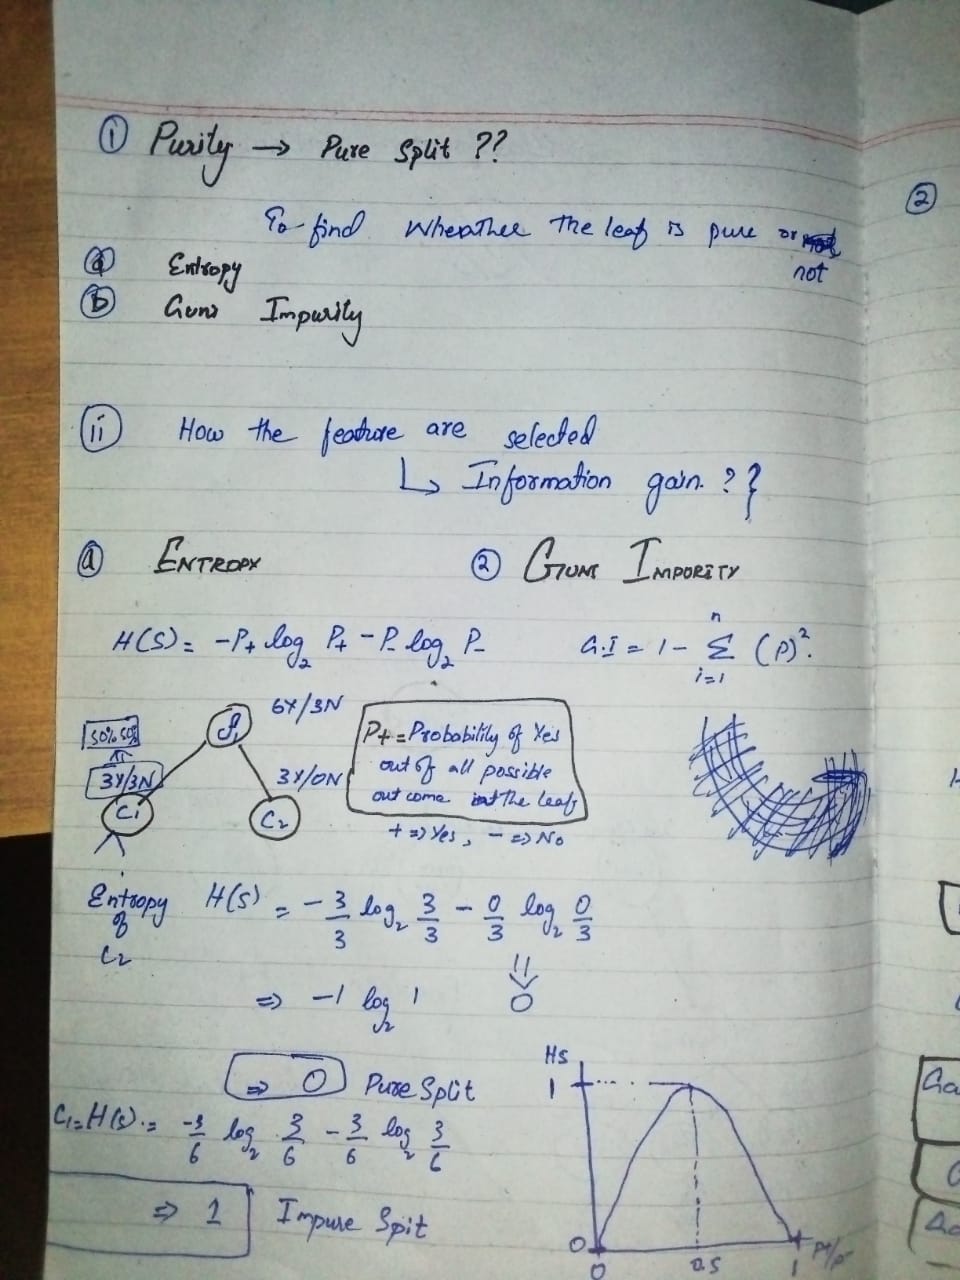 (i) Purity → Pure Split ??
To find Wheather the leaf is pure or not
(a) Entropy
(b) Guni Impurity
(ii) How the feature are selected
↳ Information gain ??
(a) ENTROPY
(2) GUNI IMPURITY
H(S) = -P+ log₂ P+ - P- log₂ P-
G.I = 1 - Σ (P)².
n
i=1
6Y/3N
50% 50%
3Y/3N
3Y/0N
C₁
C₂
P+ = Probability of Yes
out of all possible
out come
+ => Yes, - => No
Entropy of C₂
H(S) = -3/3 log₂ 3/3 - 0/3 log₂ 0/3
=> -1 log₂ 1
0
=> 0 Pure Split
C₁ = H(s) = -3/6 log₂ 3/6 - 3/6 log₂ 3/6
=> 1 Impure Spit
Hs
1
0
0
0.5
1
P+/P-
(2)